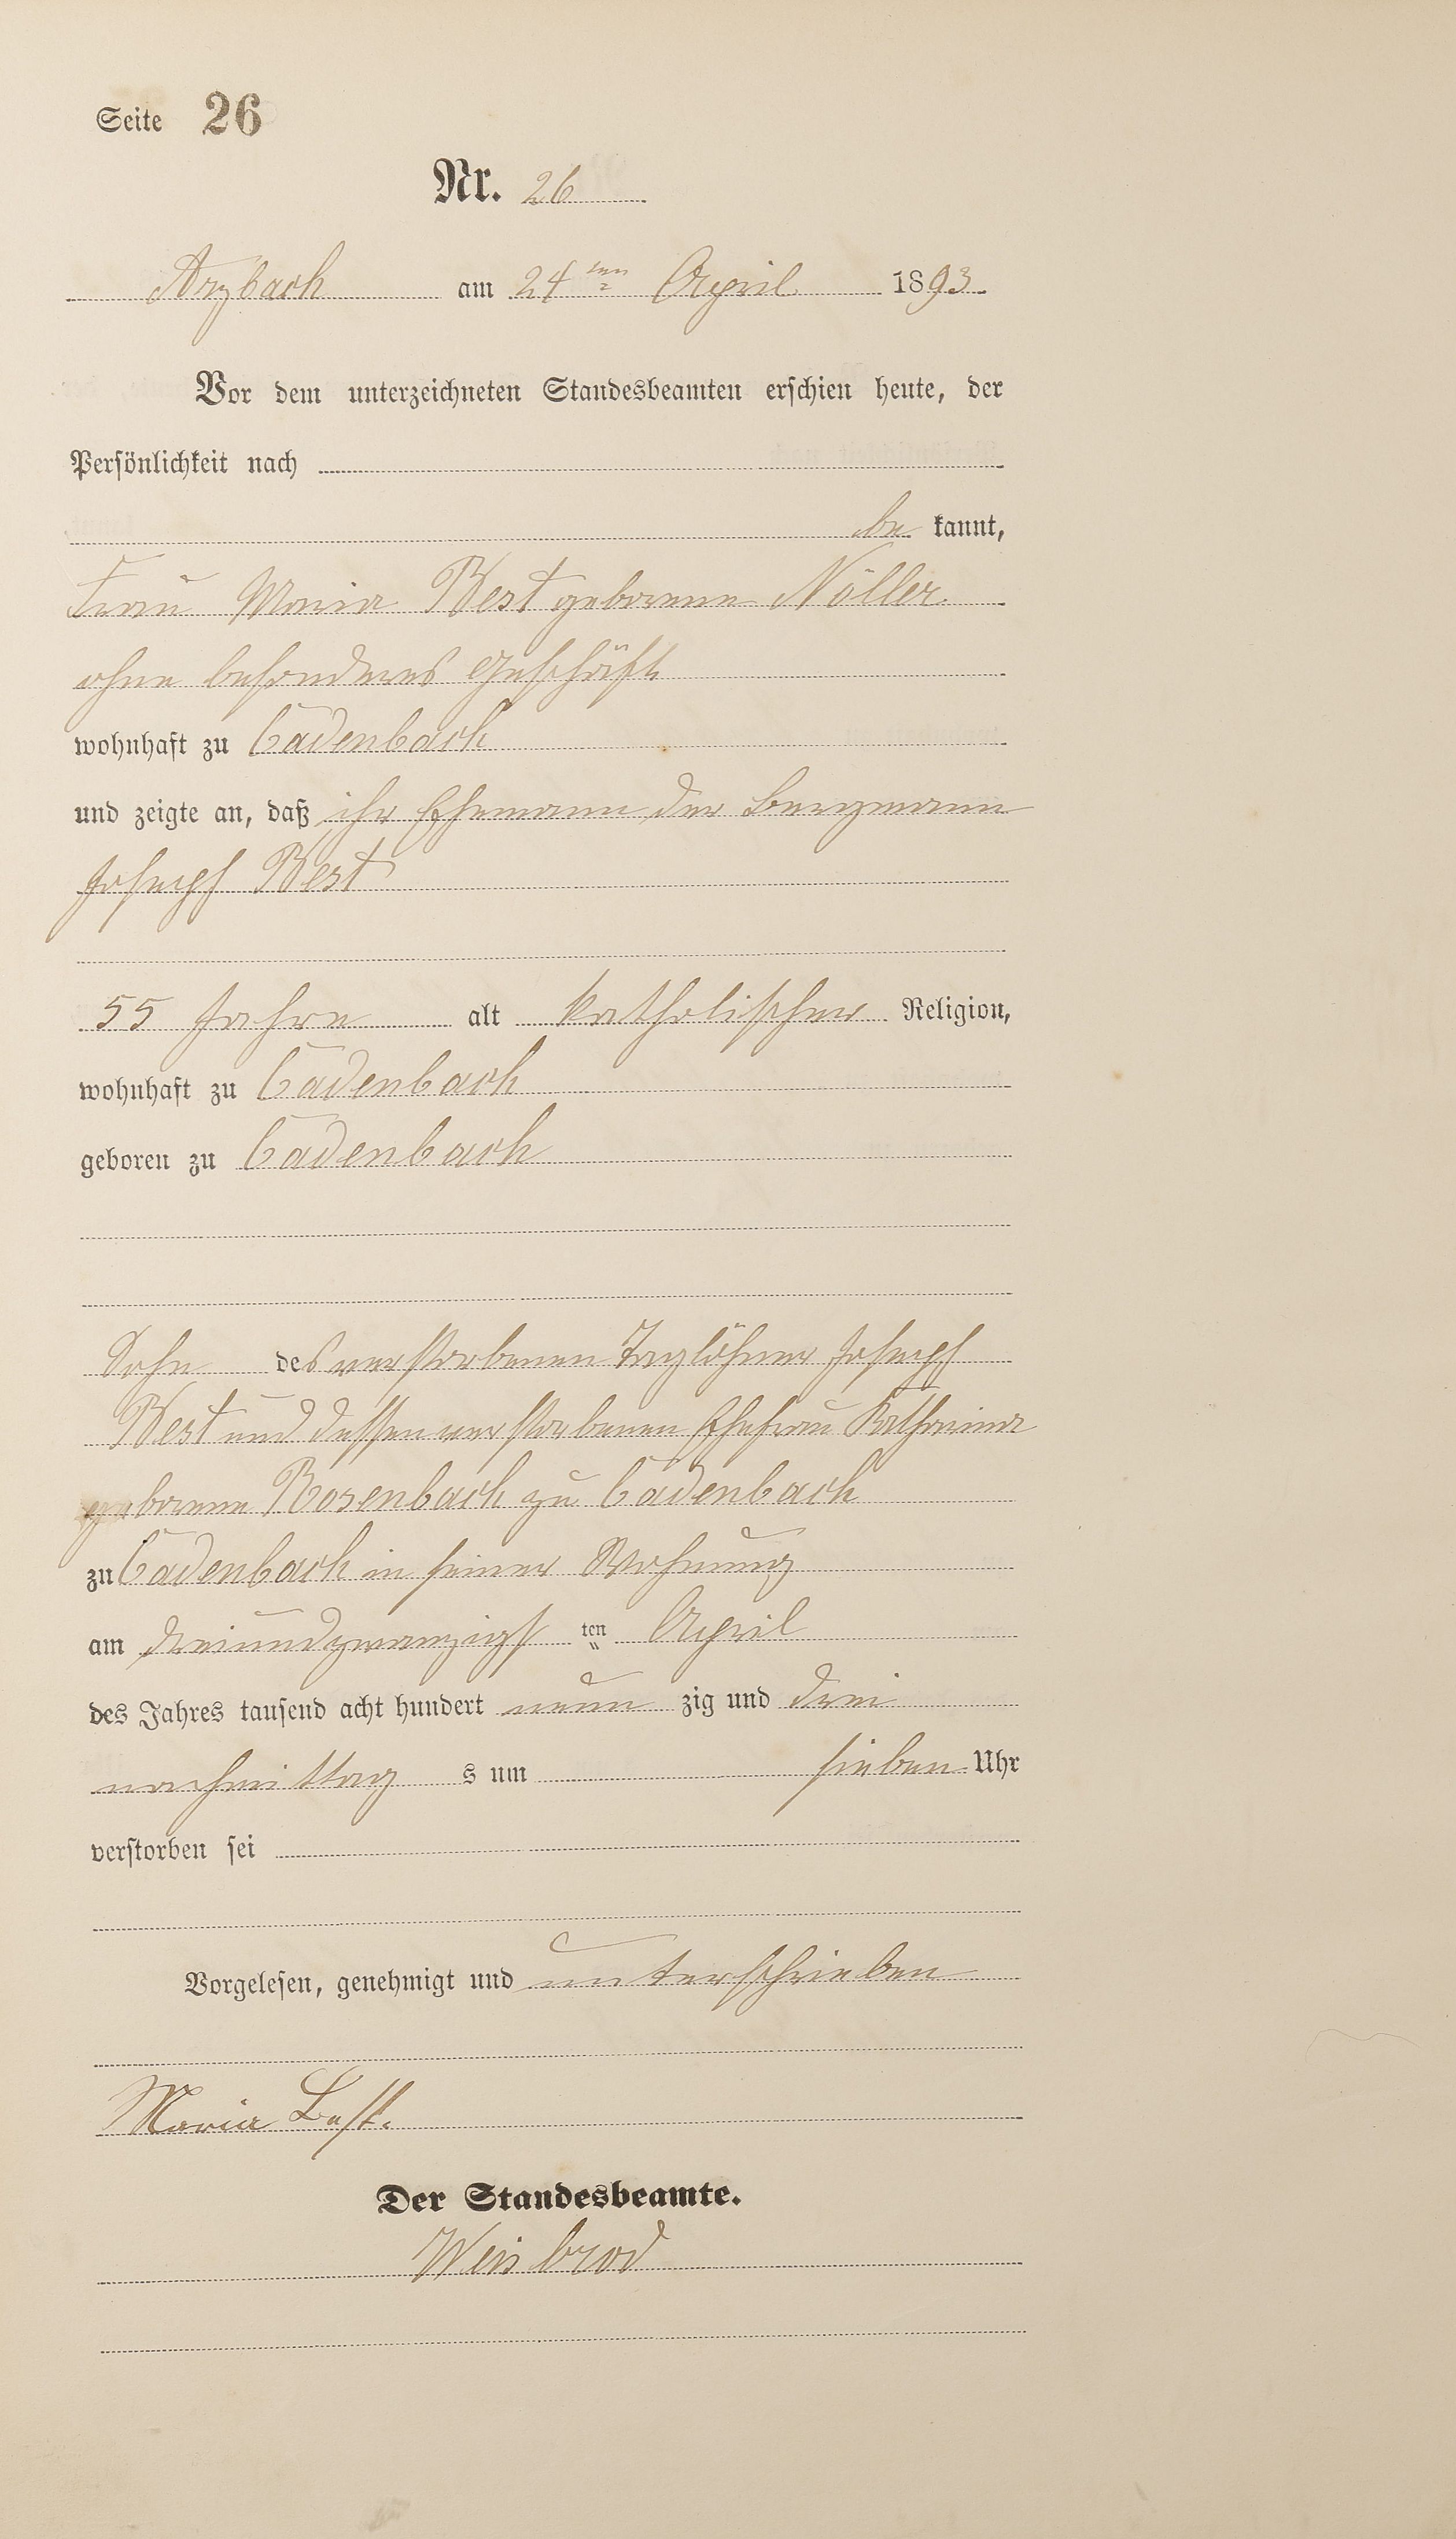 Seite 26
Nr. 26
Arzbach am 24ten April 1893
Vor dem unterzeichneten Standesbeamten erschien heute, der
Persönlichkeit nach
be kannt,
Frau Maria Best geborene Nöller
ohne besonderes Geschäft
wohnhaft zu Cadenbach
und zeigte an, daß ihr Ehemann der Bergmann
Joseph Best
55 Jahre alt katholischer Religion,
wohnhaft zu Cadenbach
geboren zu Cadenbach
Sohn des verstorbenen Taglöhner Joseph
Best und dessen verstorbenen Ehefrau Katharina
geborene Rosenbach zu Cadenbach
zu Cadenbach in seiner Wohnung
am dreiundzwanzigs ten April
des Jahres tausend acht hundert neun zig und drei
nachmittag s um sieben Uhr
verstorben sei
Vorgelesen, genehmigt und unterschrieben
Maria Best.
Der Standesbeamte.
Weisbrod